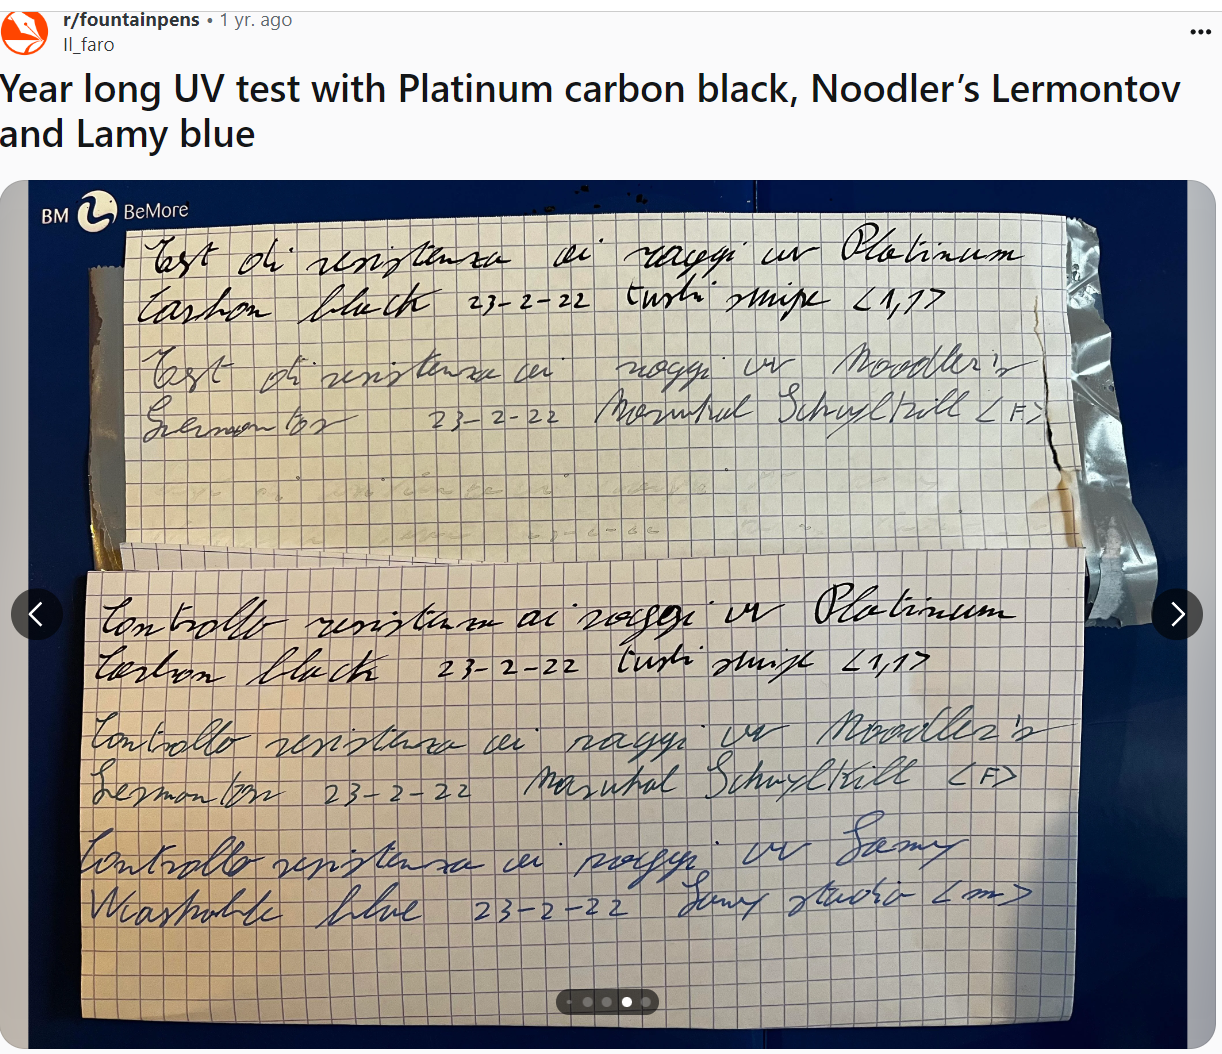 r/fountainpens • 1 yr. ago
Il_faro
Year long UV test with Platinum carbon black, Noodler’s Lermontov
and Lamy blue
BM BeMore
Test di resistenza ai raggi uv Platinum
Carbon black 23-2-22 tushi <1,1>
Test di resistenza ai raggi uv Noodler's
Lermontov 23-2-22 Schuylkill <F>
23-2-22
Controllo resistenza ai raggi uv Platinum
Carbon black 23-2-22 tushi <1,1>
Controllo resistenza ai raggi uv Noodler's
Lermontov 23-2-22 Schuylkill <F>
Controllo resistenza ai raggi uv Lamy
Washable blue 23-2-22 Lamy studio <m>